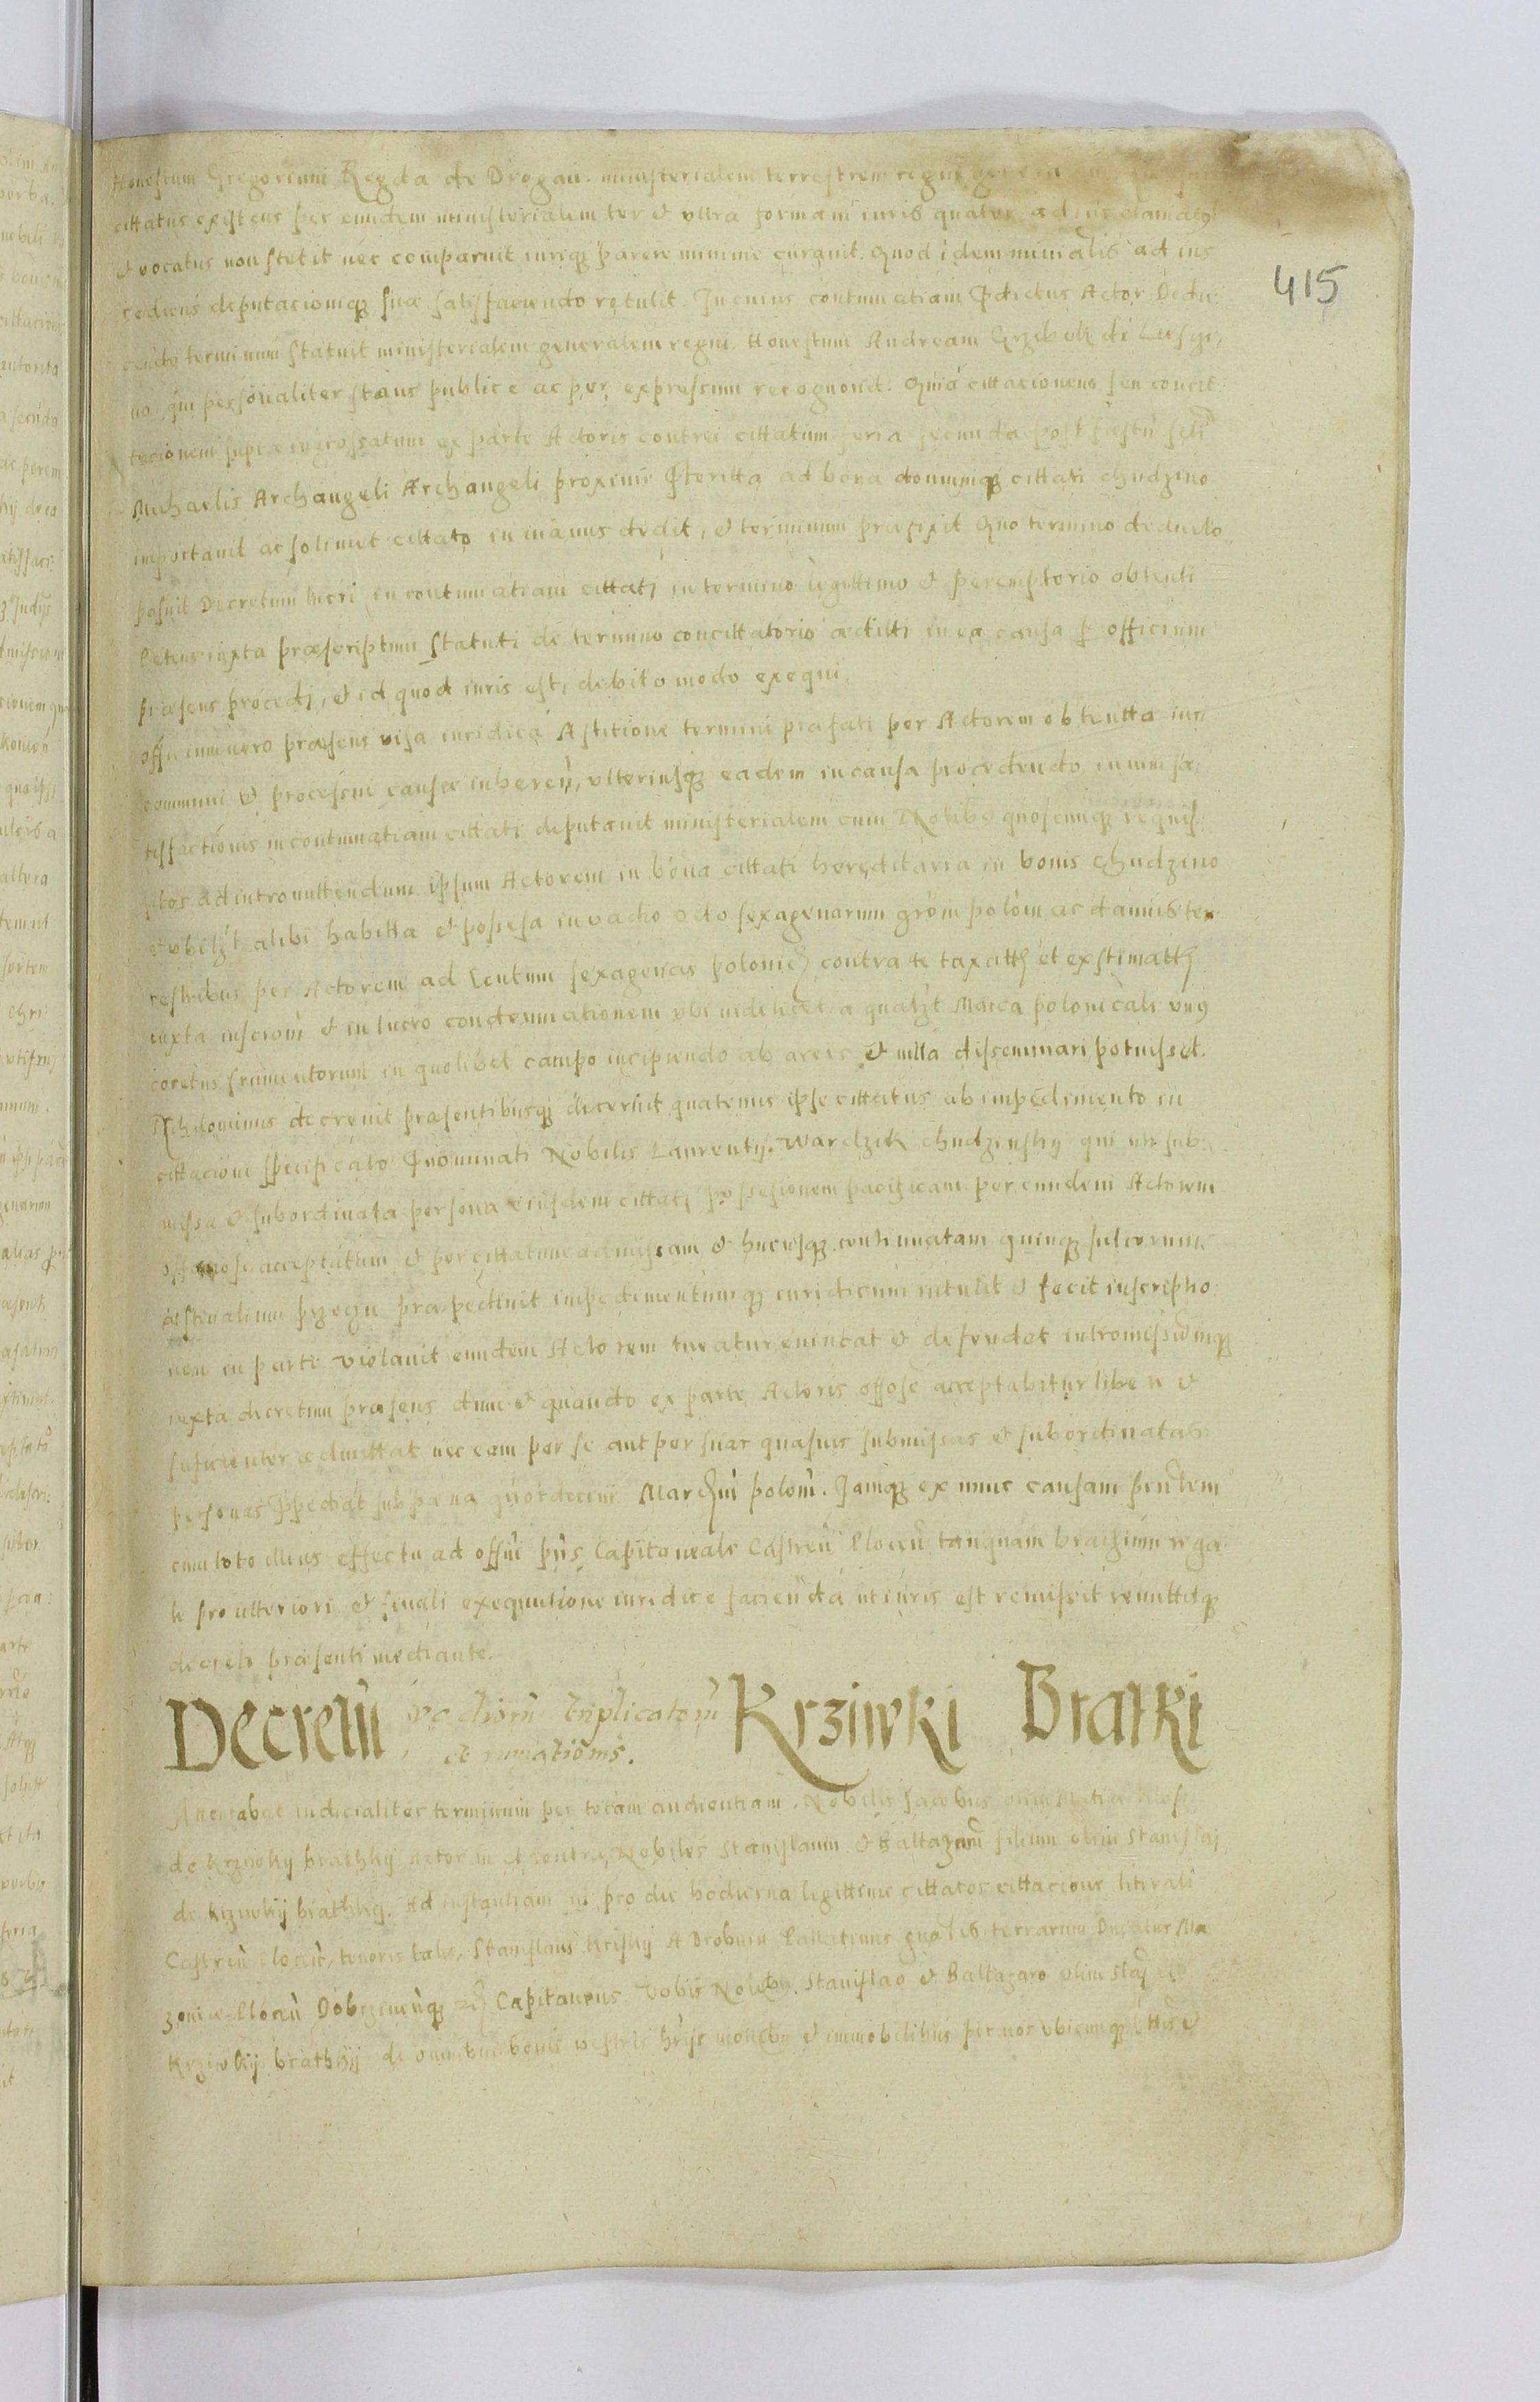 Honestum Gregorium Regda de Drogan. ministerialem terrestrem regni
cittatus existens per eundem ministerialem ter et ultra formam iuris quater ad ius clamatus
et vocatus non stetit nec comparuit iuriq parere minime curauit. Quod idem minialis ad ius
rediens deputacioniq suæ satisfaciendo retulit. In cuius contumatiam Pdictus Actor Dedu-
cendo terminum statuit ministerialem generalem regni. Honestum Andream Grzibek de
no qui personaliter stans publice ac per expressum recognouit. Quia cittacionem seu concit
tacionem supra ingrossatam ex parte Actoris contra cittatum feria secunda post festū scti
Michaelis Archangeli Archangeli proxime Pteritta ad bona domumq cittati Chudzino
importauit ac solimet cittato in manus dedit, et terminum præfixit. Quo termino deducto
posuit Decretum lucri in contumatiam cittati in termino legittimo et peremptorio obtenti
Petens iuxta præscriptum Statuti de termino concittatorio ædilti in ea causa P officium
præsens procedi, et id quod iuris est, debito modo exequi.
Officium vero præsens visa iuridica Astitione termini præfati per Actorem obtentta iuri
communi et processui causæ inheren, ulteriusq eadem in causa procedendo in vim sa-
tisfactionis in contumatiam cittati deputauit ministerialem cum Nolibs quoscumq requisi
ad intromittendum ipsum Actorem in bona cittati hereditaria in bonis Chudzino
et ubilzt alibi habitta et possesa in vadio octo sexagenarum grom polon, ac damis ter-
restribus per Actorem ad Centum sexagenas polonic contra te taxatt et exstimatt
iuxta inscrom et in lucro condemnationem ubi videlicet a qualzt Marca polonicali unus
coretus frumentorum in quolibet campo incipiendo ab areis et villa disseminari potuisset.
decreuit præsentibusq decernit quatenus ipse cittatus ab impedimento in
cittacione specificato Pnominati Nobilis Laurentij. Wardzik Chudzinsky qui uti sub-
missa et subordinata persona eiusdem cittati possesionem pacificam per eundem Actorem
acceptatam et per cittatum admissam et hucusq continuatam quinq sulcorum
æstiualium præpediuit impedimentumq iuridicum intulit et fecit inscriptio-
nem in parte violauit eundem Actorem tueatur euincat et defendet intromissiomq
iuxta decretum præsens dum et quando ex parte Actoris offose acceptabitur libere et
suficienter admittat nec eam per se aut per suas quasuis submissas et subordinatas
personas Ppediat sub pæna quordecim Marchni polom. Iamq ex nunc causam prntem
cum toto illius effectu ad offm pns Capitaneale Castren Plocen tanquam brachium rega-
le pro ulteriori et finali exequutione iuridice facienda ut iuris est remisit remittitq
decreto præsenti mediante.
Decretū triplicatorū Krziwki Bratki
Attentabat iudicialiter terminum per totam audientiam. Nobilis Jacobus
de Krziwky brathky Actorem et contra Nobiles Stanislaum et Baltazarum filium olim Stanislai
de Krziwkij brathky. Ad instantiam pro die hodierna legittime cittatos cittacione literali
Castren Plocen, tenoris talis. Stanislaus Kriskij A Drobnin Pallatinus gnalis terrarum Ducatus Ma-
zoniæ Plocen Dobrzinenq Capitaneus. Vobis Nolibs. Stanislao et Baltazaro olim Stai de
Krziwkij brathkij de omnibus bonis vestris hrijs mobibs et immobilibus per vos ubicumq et
415